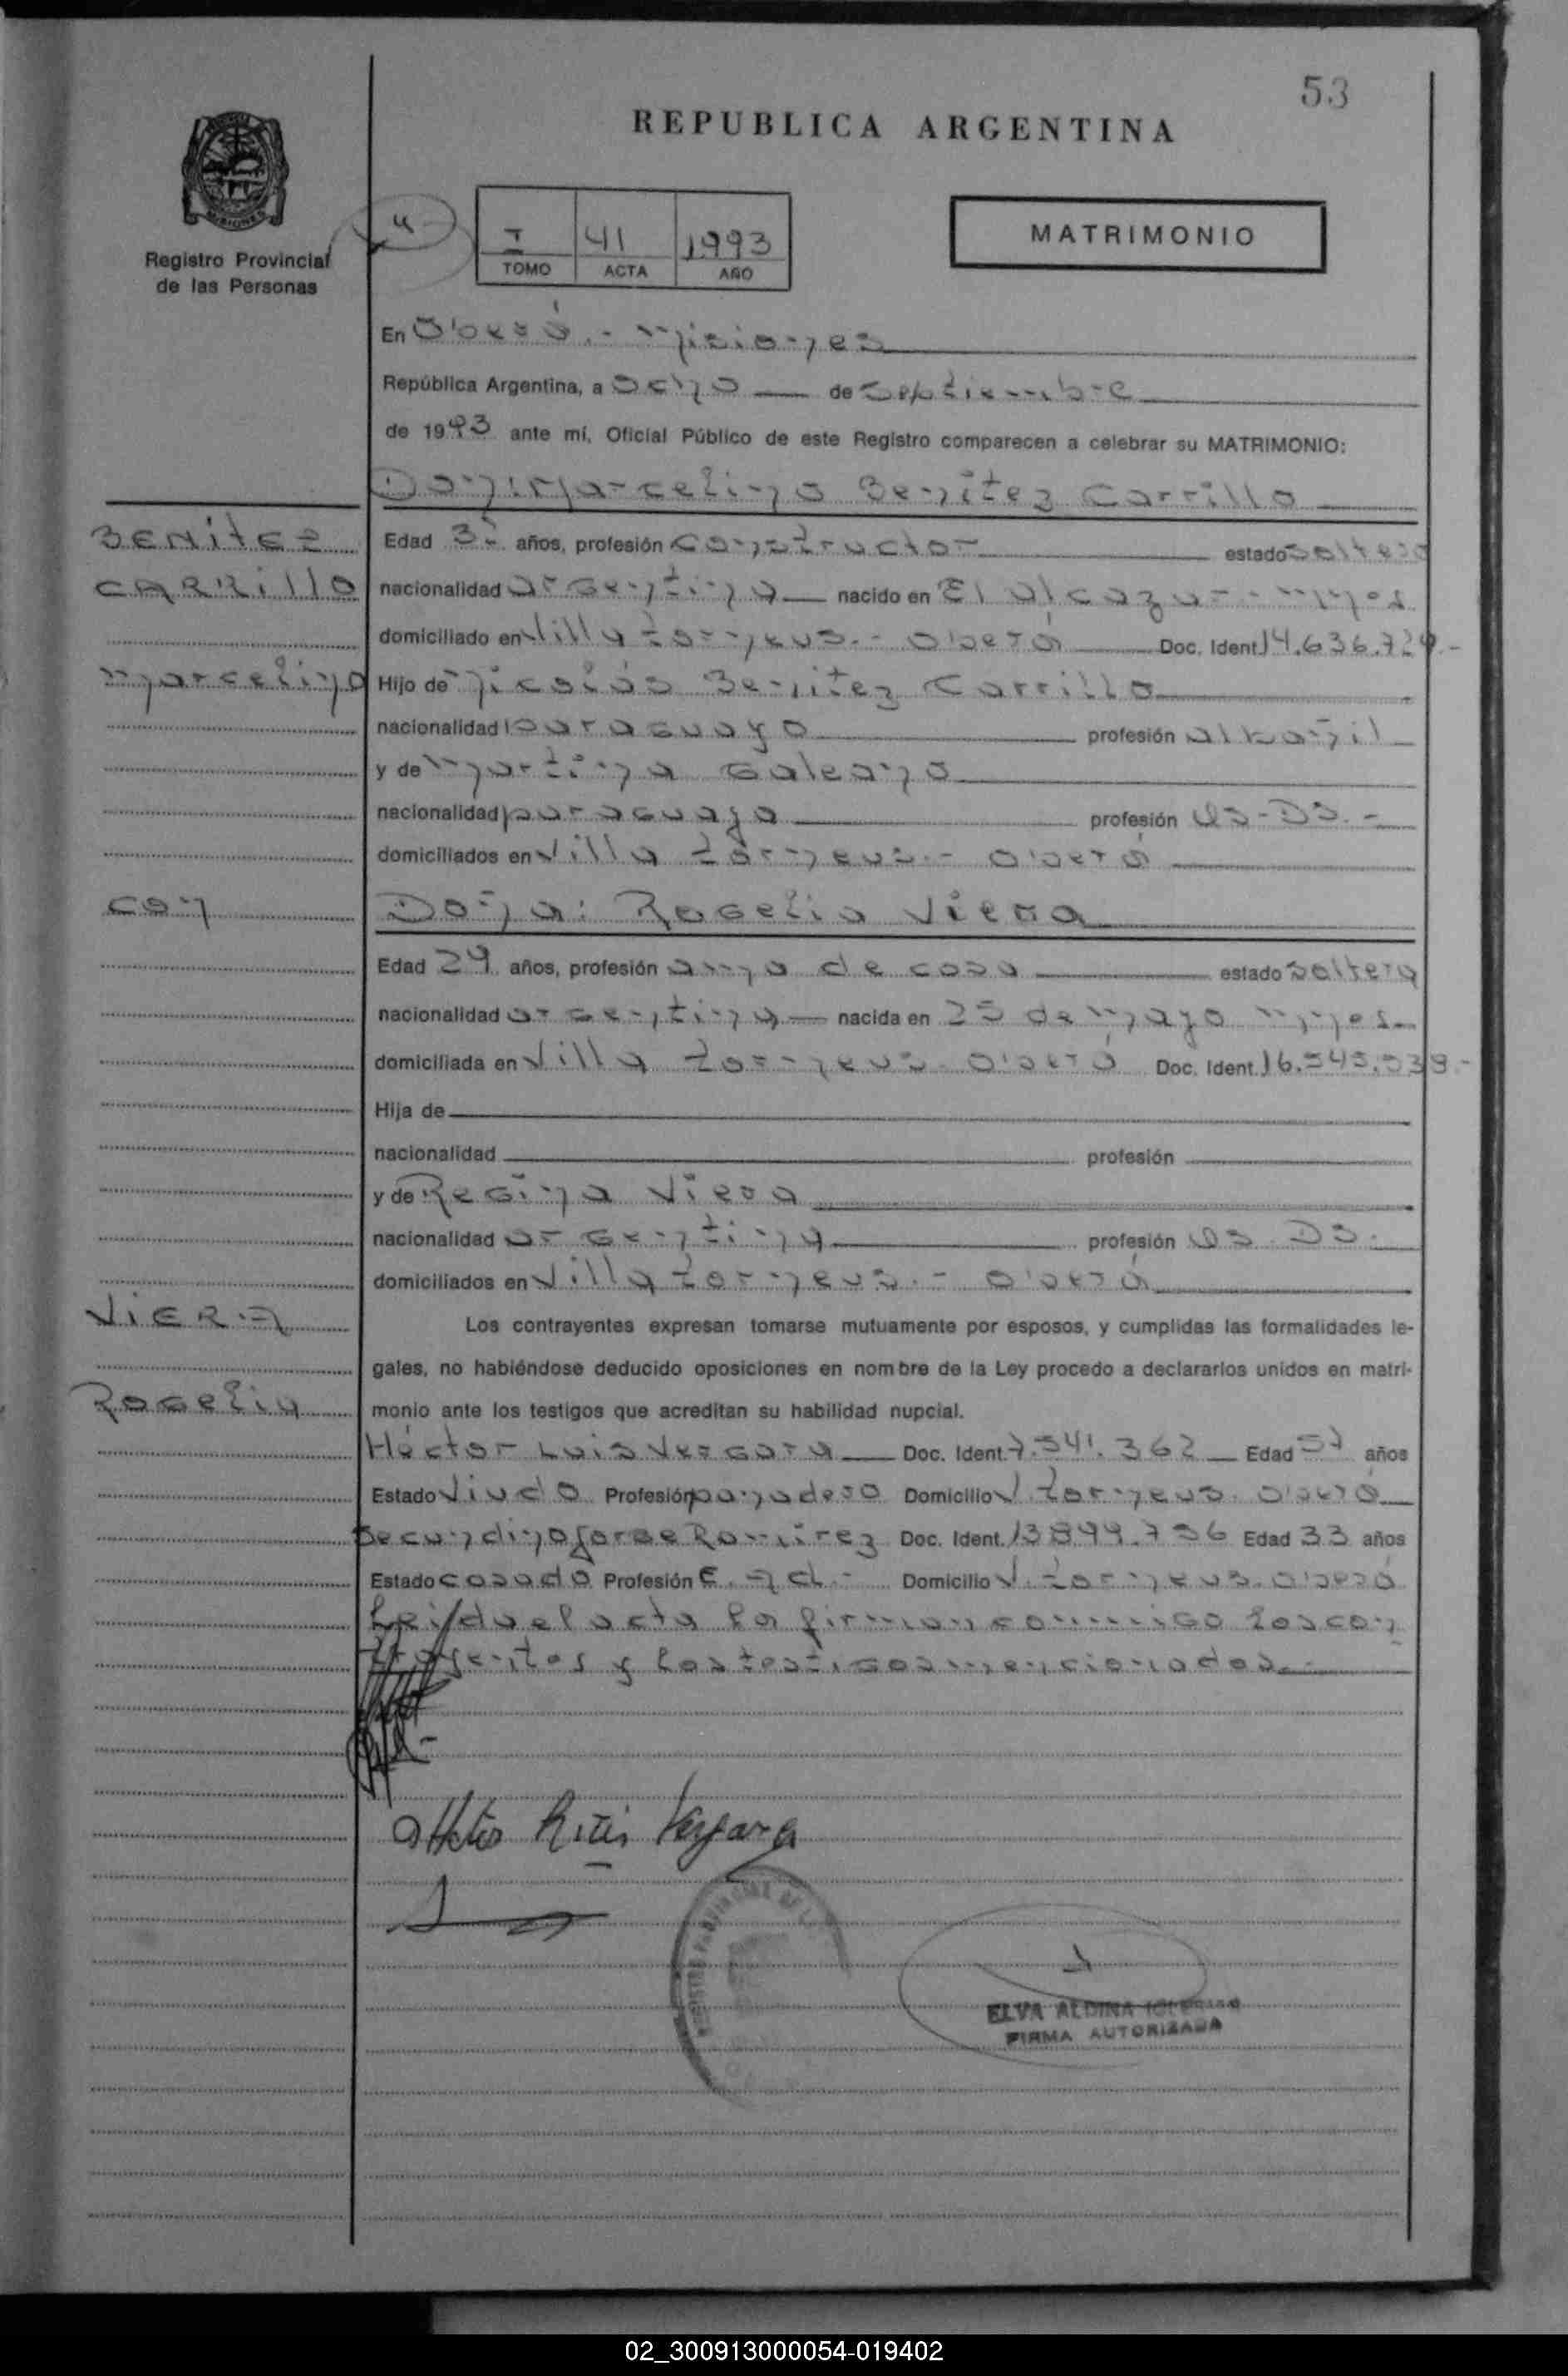 53
REPUBLICA ARGENTINA
MATRIMONIO
I 41 1993
TOMO ACTA AÑO
Registro Provincial
de las Personas
En Oberá.- Misiones
República Argentina, a ocho de Septiembre
de 1993 ante mí, Oficial Público de este Registro comparecen a celebrar su MATRIMONIO:
Don: Marcelino Benítez Carrillo
BENITEZ
CARRILLO
Marcelino
Edad años, profesión constructor estado soltero
nacionalidad argentina nacido en El Alcazar - Mnes.
domiciliado en Villa Torneus.- Oberá Doc. Ident. 14.636.729.-
Hijo de Nicolás Benitez Carrillo
nacionalidad paraguayo profesión albañil
y de Martina Galeano
nacionalidad paraguaya profesión Qs-Ds.-
domiciliados en Villa Torneus.- Oberá
con
Doña: Rogelia Viera
Edad 29 años, profesión ama de casa estado soltera
nacionalidad argentina nacida en 25 de Mayo Mnes.
domiciliada en Villa Torneus. Oberá Doc. Ident. 16.545.539.-
Hija de
nacionalidad profesión
y de Regina Viera
nacionalidad argentina profesión Qs. Ds.
domiciliados en Villa Torneus.- Oberá
VIERA
Rogelia
Los contrayentes expresan tomarse mutuamente por esposos, y cumplidas las formalidades le-
gales, no habiéndose deducido oposiciones en nombre de la Ley procedo a declararlos unidos en matri-
monio ante los testigos que acreditan su habilidad nupcial.
Héctor Luis Vergara Doc. Ident. 7.541.362 Edad 57 años
Estado viudo Profesión panadero Domicilio V. Torneus. Oberá
Secundino Jorge Ramírez Doc. Ident. 13.899.756 Edad 33 años
Estado casado Profesión Domicilio V. Torneus. Oberá
Leída el acta la firman conmigo los con
trayentes y los testigos mencionados.-
Vergara
ELVA ALDINA
FIRMA AUTORIZADA
02_300913000054-019402